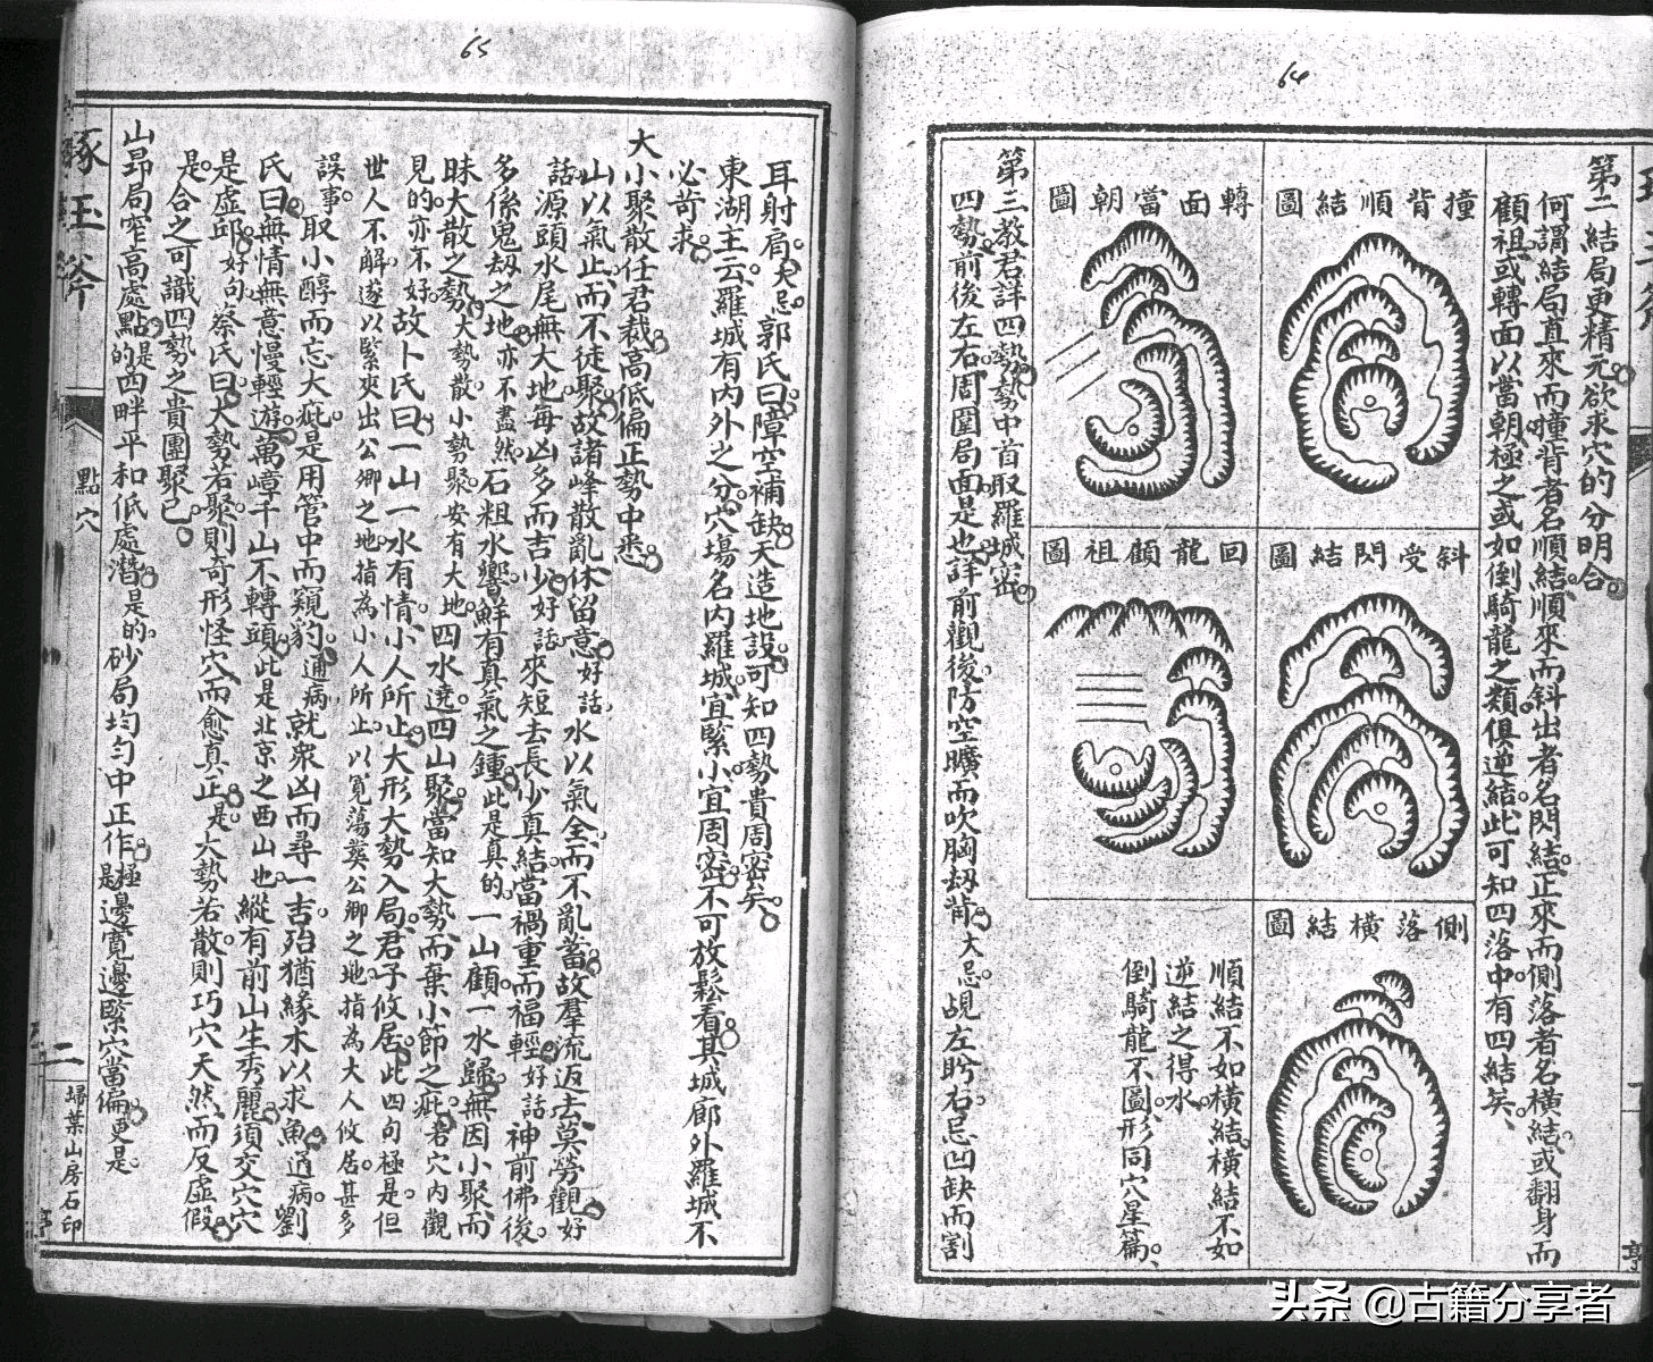 64
第二結局更精元欲求穴的分明合
何謂結局直來而撞背者名順結順來而斜出者名閃結正來而側落者名橫結或翻身而
顧祖或轉面以當朝極之或如倒騎龍之類俱逆結此可知四落中有四結矣
撞背順結圖
轉面當朝圖
斜受閃結圖
回龍顧祖圖
側落橫結圖
順結不如橫結橫結不如
逆結之得水
倒騎龍不圖形同穴星篇
第三教君詳四勢勢中首取羅城密
四勢前後左右周圍局面是也詳前觀後防空曠而吹胸劫背大忌覘左盻右忌凹缺而割
65
耳射肩大忌郭氏曰障空補缺天造地設可知四勢貴周密矣
東湖主云羅城有內外之分穴塲名內羅城宜緊小宜周密不可放鬆看其城廊外羅城不
必苛求
大小聚散任君裁高低偏正勢中悉
山以氣止而不徒聚故諸峰散亂休留意好話水以氣全而不亂蓄故羣流返去莫勞觀好
話源頭水尾無大地每凶多而吉少好話來短去長少真結當禍重而福輕好話神前佛後
多係鬼刼之地亦不盡然石粗水響鮮有真氣之鍾此是真的一山顧一水歸無因小聚而
昧大散之勢大勢散小勢聚安有大地四水遶四山聚當知大勢而棄小節之疵若穴內觀
見的亦不好故卜氏曰一山一水有情小人所止大形大勢入局君子攸居此四句極是但
世人不解遂以緊夾出公卿之地指為小人所止以寬蕩葬公卿之地指為大人攸居甚多
誤事取小醇而忘大疵是用管中而窺豹通病就衆凶而尋一吉殆猶緣木以求魚通病劉
氏曰無情無意慢輕遊萬嶂千山不轉頭此是北京之西山也縱有前山生秀麗須交穴穴
是虛邱好句蔡氏曰大勢若聚則奇形怪穴而愈真正是大勢若散則巧穴天然而反虛假
是合之可識四勢之貴團聚已
山昂局窄高處點是的四畔平和低處潛是的砂局均勻中正作極是邊寬邊緊穴當偏更是
琢玉斧
點穴
二
埽葉山房石印
头条 @古籍分享者